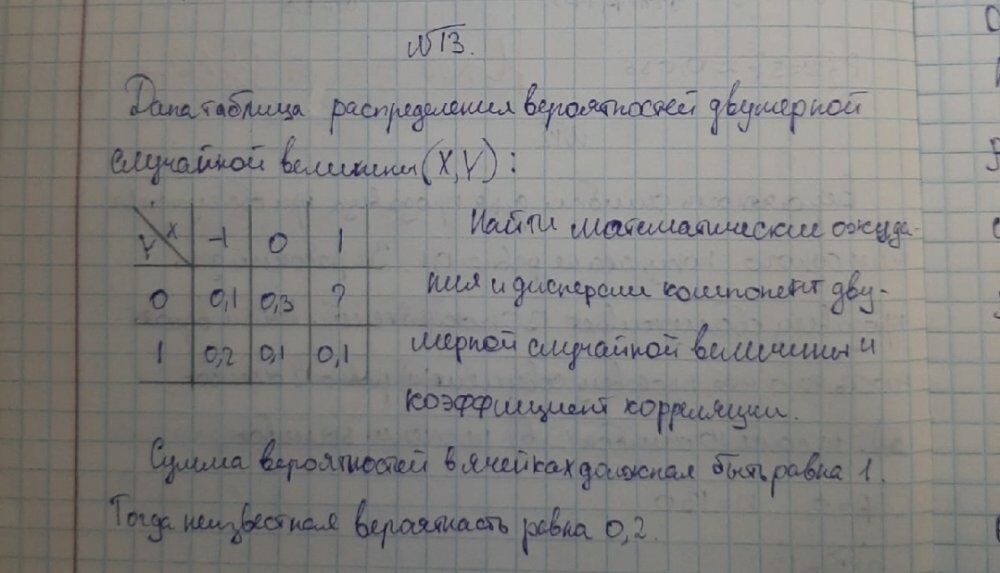 №13.
Дана таблица распределения вероятностей двумерной
случайной величины (X,Y):
Y X -1 0 1
0 0,1 0,3 ?
1 0,2 0,1 0,1
Найти математические ожида-
ния и дисперсии компонент дву-
мерной случайной величины и
коэффициент корреляции.
Сумма вероятностей в ячейках должная быть равна 1.
Тогда неизвестная вероятность равна 0,2.